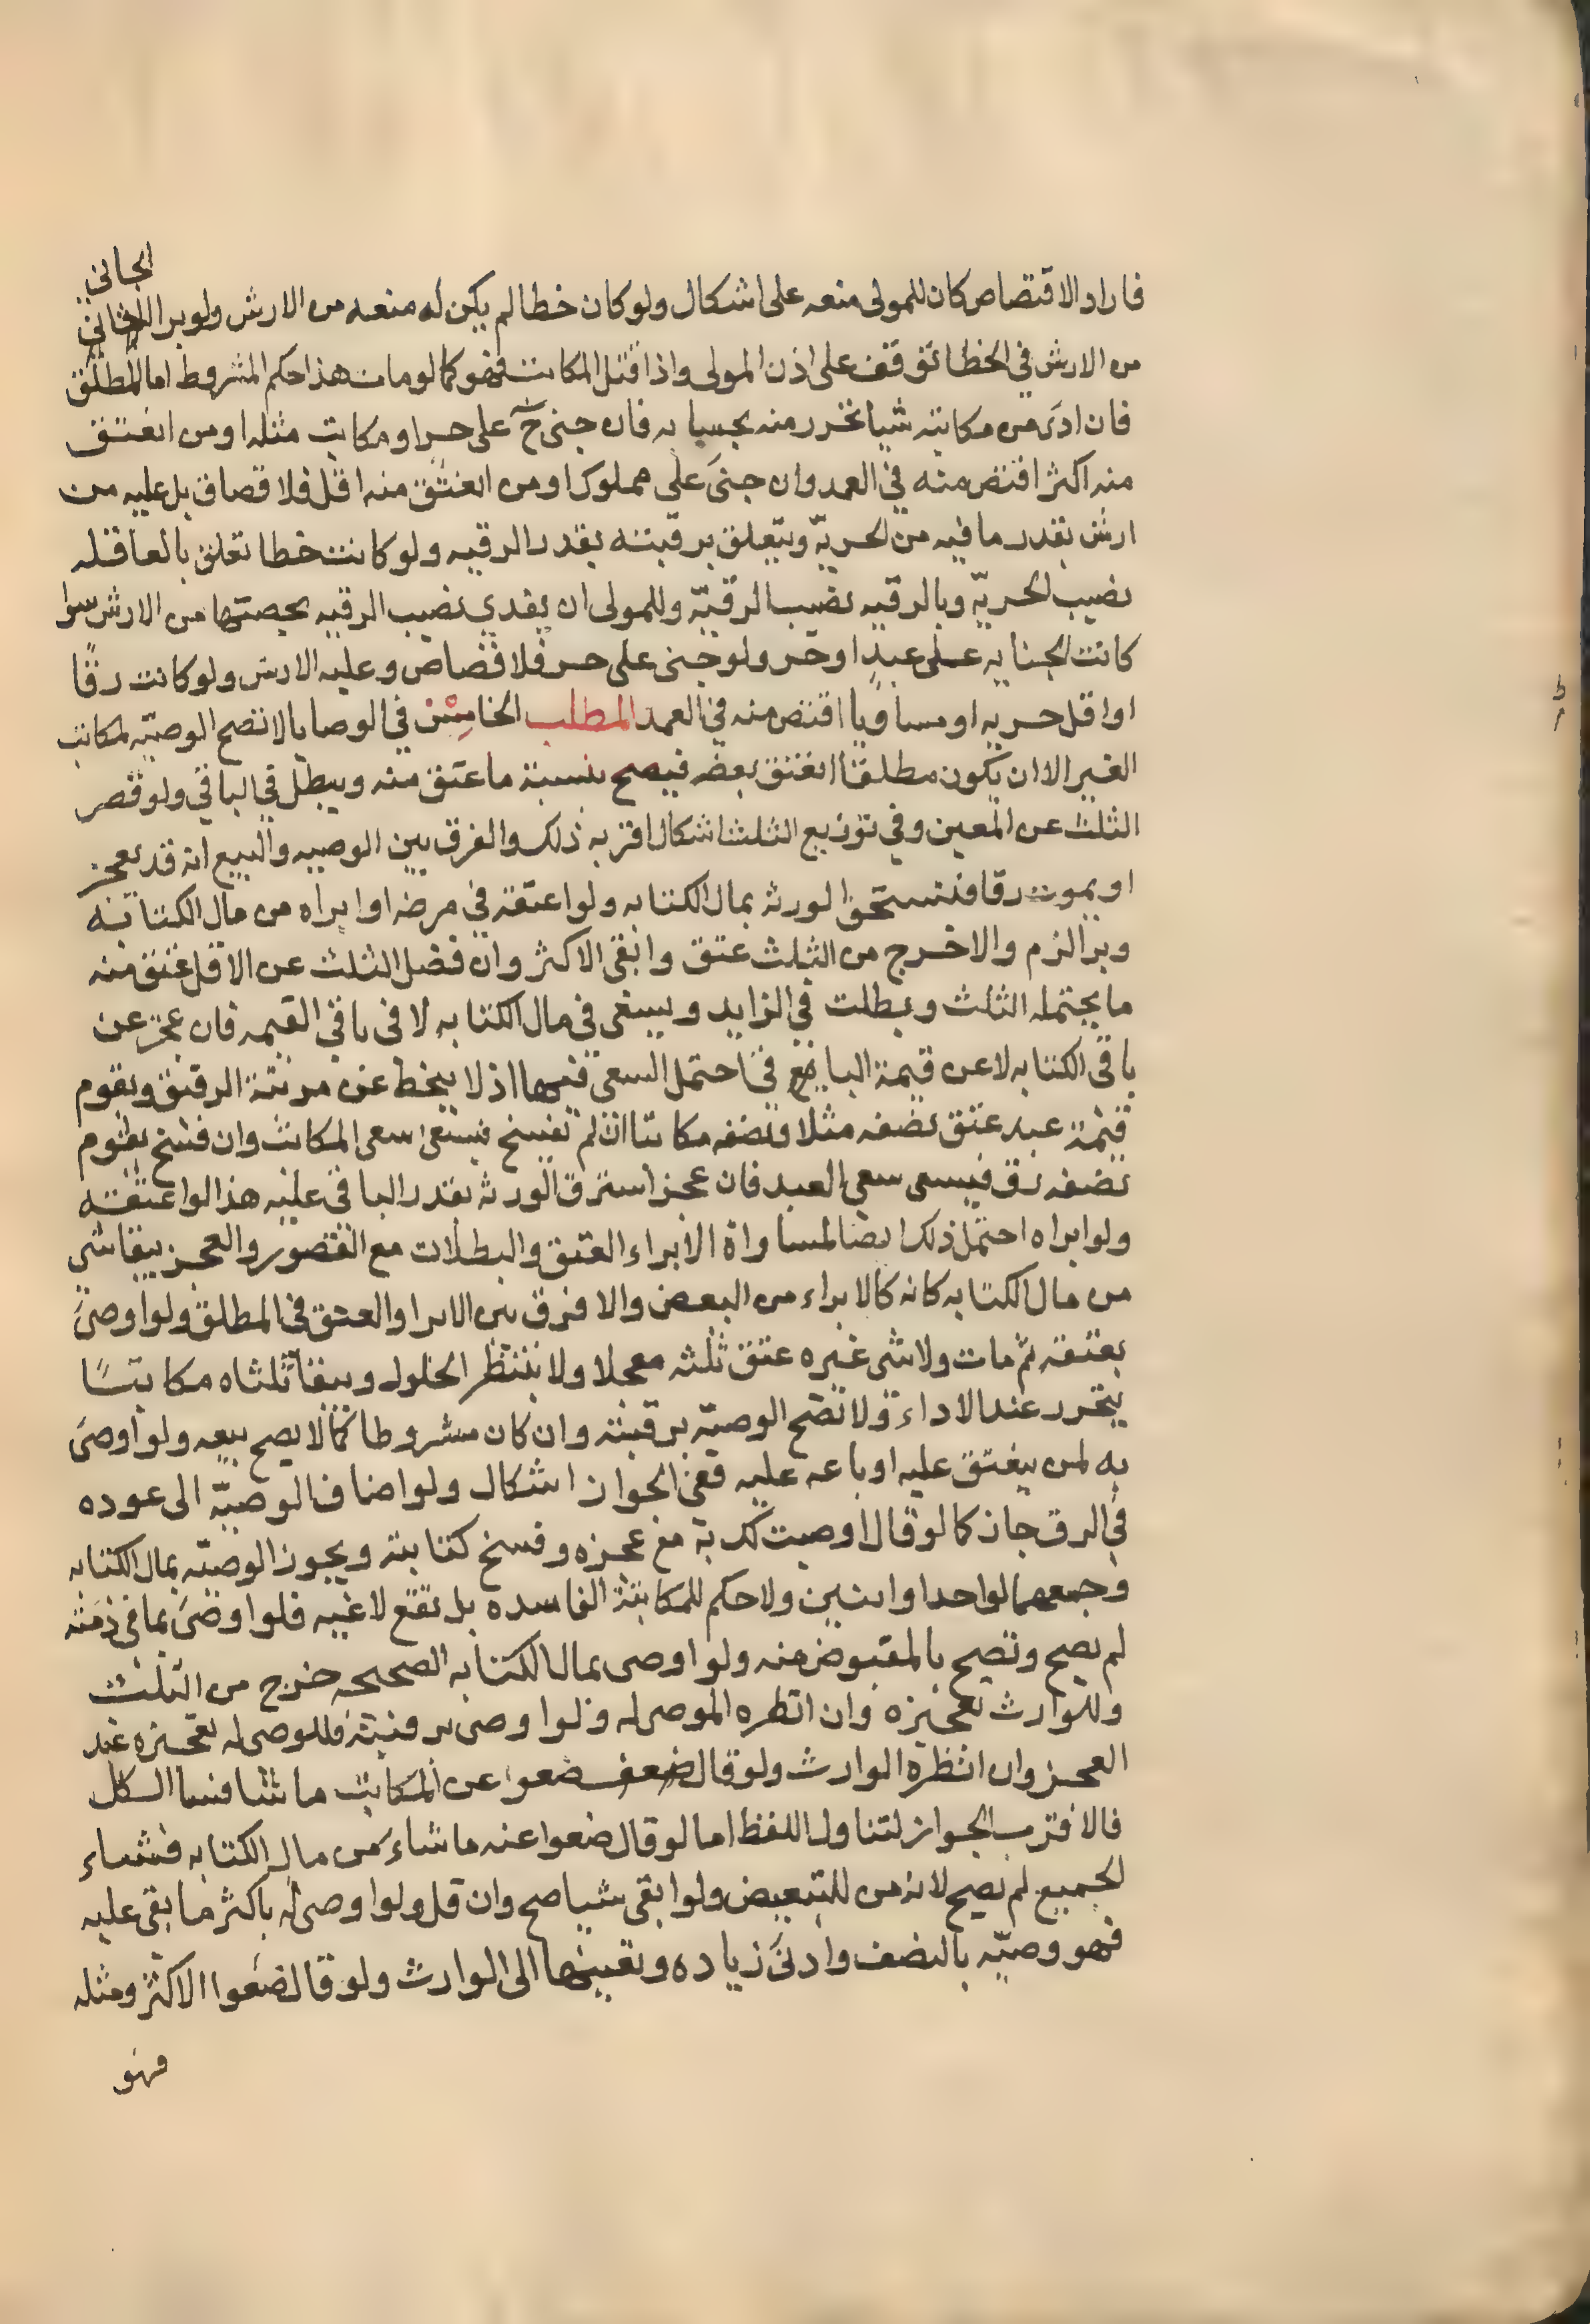 الجاني
فاراد الاقتصاص كان للمولى منعه على اشكال ولو كان خطا لم يكن له منعه من الارش ولو برا الجاني
من الارش في الخطا توقف على اذن المولى واذا قتل المكاتب فهو كما لو مات هذا حكم المشروط اما المطلق
فان ادى من مكاتبته شيا تحرر منه بحسابه فان جنى ح على حر او مكاتب مثله او من انعتق
منه اكثر اقتص منه في العمد وان جنى على مملوك او من انعتق منه اقل فلا قصاص بل عليه من
ارش بقدر ما فيه من الحريّه ويتعلق برقبته بقدر الرقيه ولو كانت خطا تعلق بالعاقله
نصيب الحريّه وبالرقبه نصيب الرقيّه وللمولى ان يفدي نصيب الرقيه بحصتها من الارش سوا
كانت الجنايه على عبدٍ او حر ولو جنى على حر فلا قصاص وعليه الارش ولو كانت رقًا
او اقل حريه او مساويا اقتص منه في العمد المطلب الخامس في الوصايا لا تصح الوصيّه لمكاتب
الغير الا ان يكون مطلقا انعتق بعضه فيصح بنسبة ما عتق منه ويبطل في الباقي ولو قصر
الثلث عن المعين وفي توزيع الثلث اشكال اقربه ذلك والفرق بين الوصيه والبيع انه قد يعجز
او يموت رقا فتستحق الورثه بمال الكتابه ولو اعتقه في مرضه او ابراه من مال الكتابه
وبرا لزم والا خرج من الثلث عتق وابقى الاكثر وان فضل الثلث عن الاقل عتق منه
ما يحتمله الثلث وبطلت في الزايد ويسعى في مال الكتابه لا في باقي القيمه فان عجز عن
باقى الكتابه لا عن قيمة الباقي احتمل السعى فيها اذ لا ينحط عن مرتبة الرقيق ويقوم
قيمة عبد عتق نصفه مثلا ونصفه مكاتبا ان لم تفسخ فيسعى سعى المكاتب وان فسخ يقوم
نصفه رق فيسعى سعي العبد فان عجز استرق الورثه بقدر الباقى عليه هذا لو اعتقه
ولو ابراه احتمل ذلك ايضا لمساواة الابراء العتق والبطلان مع القصور والعجز ببقا شي
من مال الكتابه كانه كالابراء من البعض والا فرق بين الابرا والعتق في المطلق ولو اوصىَ
بعتقه ثم مات ولا شى غيره عتق ثلثه معجلا ولا ينتظر الحلول ويبقا ثلثاه مكاتبًا
يتحرر عند الاداء ولا تصح الوصيّه برقبته وان كان مشروطا كما لا يصح بيعه ولو اوصىَ
به لمن ينعتق عليه او باعه عليه ففى الجواز اشكال ولو اضاف الوصيّه الى عوده
في الرق جاز كما لو قال اوصيت لك به مع عجزه وفسخ كتابته ويجوز الوصيّه بمال الكتابه
وجمعهما لواحد او اثنين ولا حكم للمكاتبة الفاسده بل تقع لاغيه فلو اوصىَ بما في ذمته
لم يصح وتصح بالمقبوض منه ولو اوصى بمال الكتابه الصحيحه خرج من الثلث
وللوارث تعجيزه وان انظره الموصى له ولو اوصى برقبته فللموصى له تعجيزه عند
العجز وان انظره الوارث ولو قال ضعوا عن المكاتب ما شا فشا الكل
فالاقرب الجواز لتناول اللفظ اما لو قال ضعوا عنه ما شاء من مال الكتابه فشاء
الجميع لم يصح لانه من للتبعيض ولو ابقى شيا صح وان قل ولو اوصى له باكثر ما بقى عليه
فهو وصيّه بالنصف وادنىَ زياده وتعيينها الى الوارث ولو قال ضعوا الاكثر ومثله
فهو